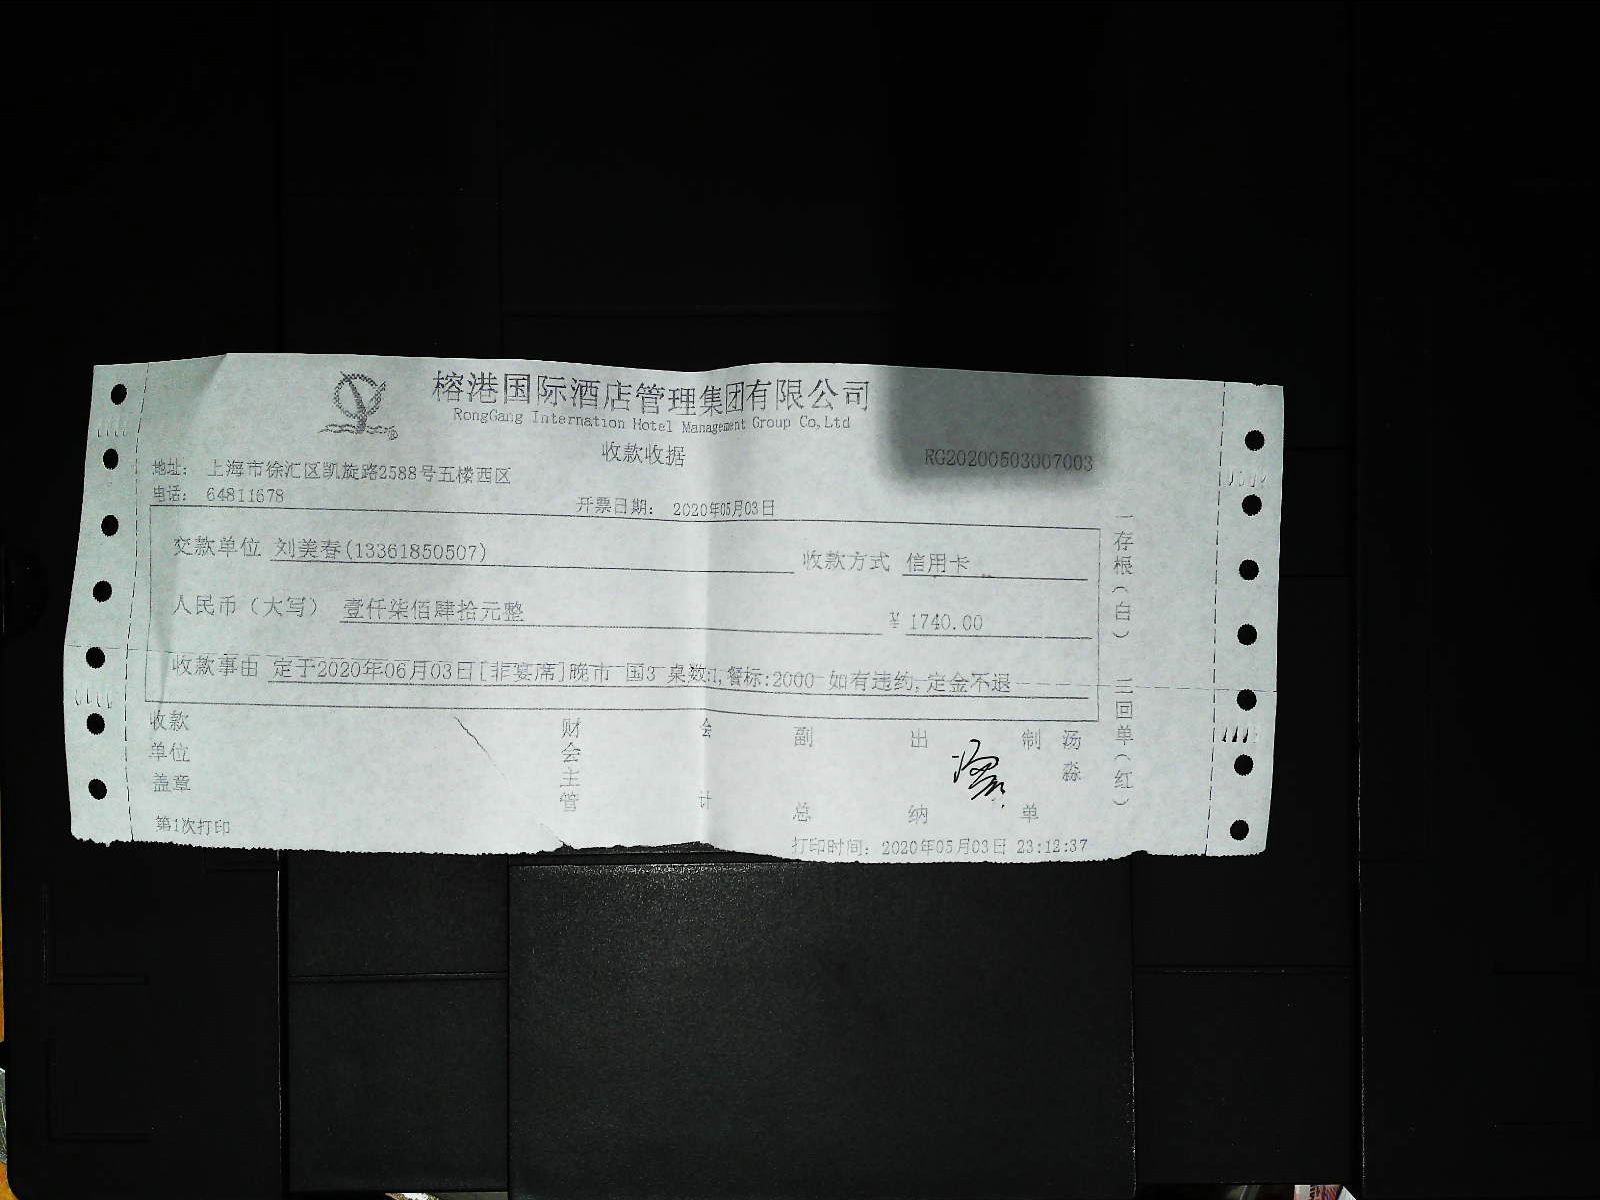 榕港国际酒店管理集团有限公司
RongGang Internation Hotel Management Group Co,Ltd
收款收据
RG20200503007003
地址： 上海市徐汇区凯旋路2588号五楼西区
电话： 64811678
开票日期： 2020年05月03日
交款单位 刘美春(13361850507) 收款方式 信用卡
人民币（大写） 壹仟柒佰肆拾元整 ¥ 1740.00
收款事由 定于2020年06月03日[非宴席]晚市 国3 桌数:1,餐标:2000 如有违约,定金不退
收款单位盖章
财会主管
会计
副总
出纳
制单
汤淼
一存根（白） 三回单（红）
第1次打印
打印时间： 2020年05月03日 23:12:37